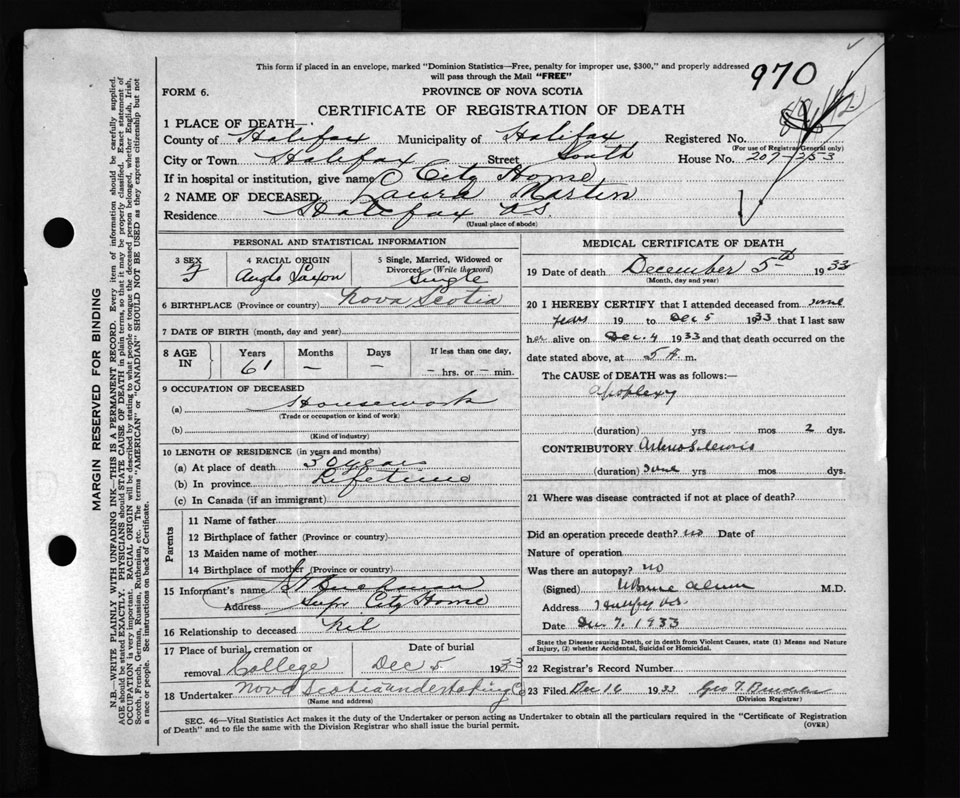 This form if placed in an envelope, marked "Dominion Statistics—Free, penalty for improper use, $300," and properly addressed
will pass through the Mail "FREE"
970
FORM 6.
PROVINCE OF NOVA SCOTIA
CERTIFICATE OF REGISTRATION OF DEATH
1 PLACE OF DEATH—
County of Halifax Municipality of Halifax Registered No.
(For use of Registrar General only)
City or Town Halifax Street South House No. 207-253
If in hospital or institution, give name City Home
2 NAME OF DECEASED Laura Martin
Residence Halifax N.S.
(Usual place of abode)
PERSONAL AND STATISTICAL INFORMATION
3 SEX F
4 RACIAL ORIGIN Anglo Saxon
5 Single, Married, Widowed or Divorced (Write the word) Single
6 BIRTHPLACE (Province or country) Nova Scotia
7 DATE OF BIRTH (month, day and year)
8 AGE IN Years 61 Months — Days — If less than one day, — hrs. or — min.
9 OCCUPATION OF DECEASED
(a) Housework
(Trade or occupation or kind of work)
(b)
(Kind of industry)
10 LENGTH OF RESIDENCE (in years and months)
(a) At place of death 30 years
(b) In province Lifetime
(c) In Canada (if an immigrant)
Parents
11 Name of father
12 Birthplace of father (Province or country)
13 Maiden name of mother
14 Birthplace of mother (Province or country)
15 Informant's name Buchanan
Address Supt City Home
16 Relationship to deceased Nil
17 Place of burial, cremation or removal College
Date of burial Dec 5 1933
18 Undertaker Nova Scotia Undertaking Co
(Name and address)
MEDICAL CERTIFICATE OF DEATH
19 Date of death December 5th 1933
(Month, day and year)
20 I HEREBY CERTIFY that I attended deceased from some
years 19 to Dec 5 1933 that I last saw
her alive on Dec. 4 1933 and that death occurred on the
date stated above, at 5 A. m.
The CAUSE of DEATH was as follows:—
Apoplexy
(duration) yrs mos 2 dys.
CONTRIBUTORY
(duration) some yrs mos dys.
21 Where was disease contracted if not at place of death?
Did an operation precede death? no Date of
Nature of operation
Was there an autopsy? NO
(Signed) M.D.
Address Halifax N.S.
Date Dec 7. 1933
State the Disease causing Death, or in death from Violent Causes, state (1) Means and Nature
of Injury, (2) whether Accidental, Suicidal or Homicidal.
22 Registrar's Record Number
23 Filed Dec 16 1933 Geo
(Division Registrar)
SEC. 46—Vital Statistics Act makes it the duty of the Undertaker or person acting as Undertaker to obtain all the particulars required in the "Certificate of Registration
of Death" and to file the same with the Division Registrar who shall issue the burial permit.
(OVER)
MARGIN RESERVED FOR BINDING
N.B.—WRITE PLAINLY WITH UNFADING INK—THIS IS A PERMANENT RECORD. Every item of information should be carefully supplied.
AGE should be stated EXACTLY. PHYSICIANS should STATE CAUSE OF DEATH in plain terms, so that it may be properly classified. Exact statement of
OCCUPATION is very important. RACIAL ORIGIN will be described by stating to what people or tongue the deceased person belonged, whether English, Irish,
Scotch, French, German, Russian, Ruthenian, etc. The terms "AMERICAN" or "CANADIAN" SHOULD NOT BE USED as they express citizenship but not
a race or people. See instructions on back of Certificate.